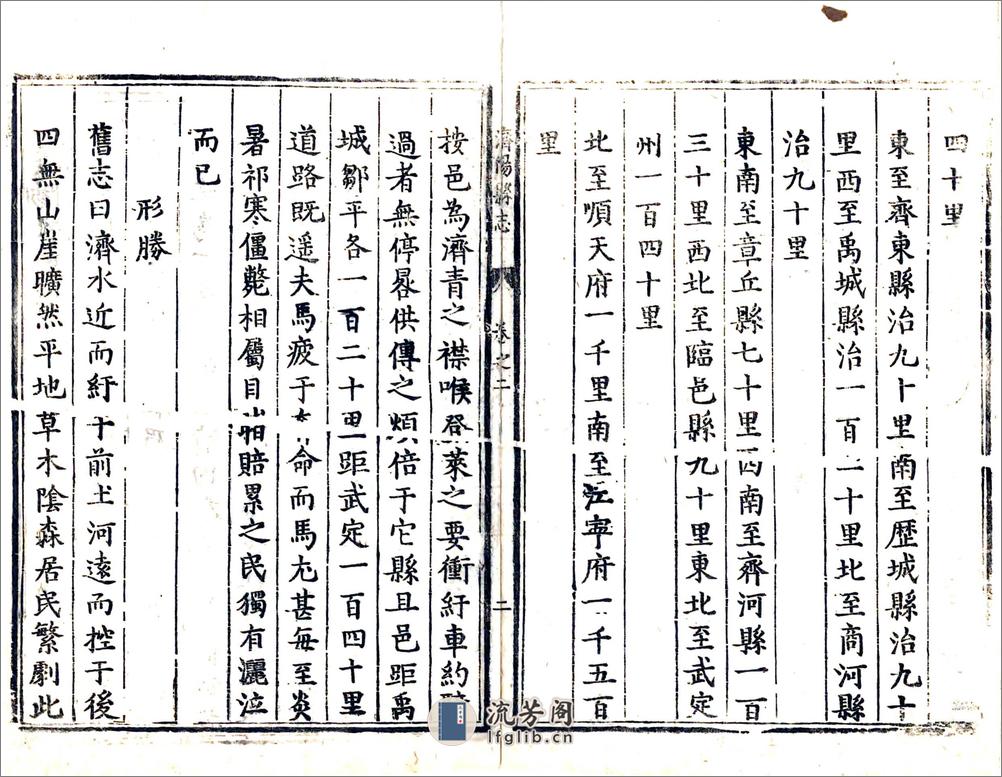 四十里
東至齊東縣治九十里南至歷城縣治九十
里西至禹城縣治一百二十里北至商河縣
治九十里
東南至章丘縣七十里西南至齊河縣一百
三十里西北至臨邑縣九十里東北至武定
州一百四十里
北至順天府一千里南至江寧府一千五百
里
濟陽縣志 卷之二 二
按邑為濟青之襟喉登萊之要衝紆車約
過者無停晷供傳之煩倍于它縣且邑距禹
城鄒平各一百二十里距武定一百四十里
道路既遥夫馬疲于奔命而馬尤甚每至炎
暑祁寒僵斃相屬目賠累之民獨有灑泣
而已
形勝
舊志曰濟水近而紆于前土河遠而控于後
四無山崖曠然平地草木陰森居民繁劇此
流芳阁
lfglib.cn